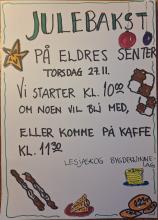 JULEBAKST
PÅ ELDRES SENTER
TORSDAG 27.11.
VI STARTER KL. 10.00
OM NOEN VIL BLI MED,
ELLER KOMME PÅ KAFFE
KL. 11.30
LESJASKOG BYGDEKVINNE-
LAG